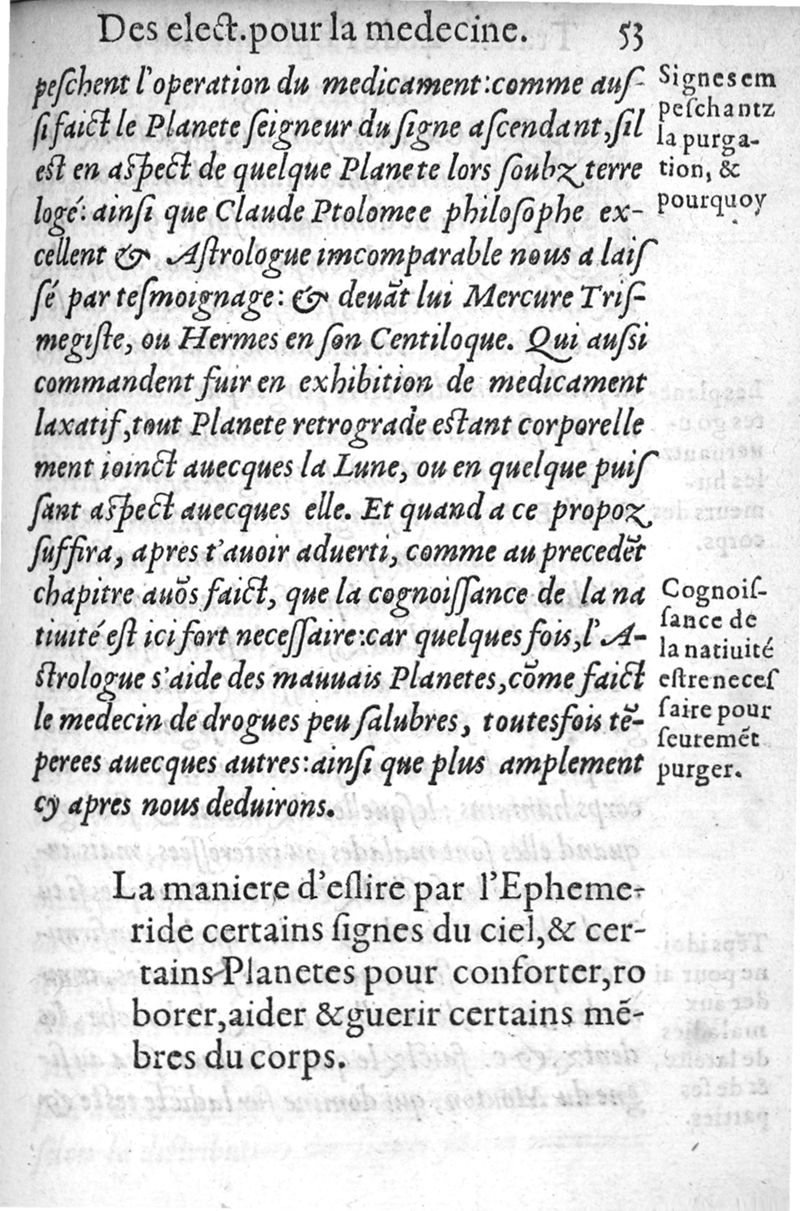 Des elect.pour la medecine. 53
peſchent l'operation du medicament:comme auſ-
ſi faict le Planete ſeigneur du ſigne aſcendant,ſil
eſt en aſpect de quelque Planete lors ſoubz terre
logé: ainſi que Claude Ptolomee philoſophe ex-
cellent & Aſtrologue imcomparable nous a laiſ
ſé par teſmoignage: & deuãt lui Mercure Triſ-
megiſte, ou Hermes en ſon Centiloque. Qui auſsi
commandent fuir en exhibition de medicament
laxatif,tout Planete retrograde eſtant corporelle
ment ioinct auecques la Lune, ou en quelque puiſ
ſant aſpect auecques elle. Et quand a ce propoz
ſuffira, apres t'auoir aduerti, comme au precedẽt
chapitre auõs faict, que la cognoiſſance de la na
tiuité eſt ici fort neceſſaire:car quelques fois,l'A-
ſtrologue s'aide des mauuais Planetes,cõme faict
le medecin de drogues peu ſalubres, toutesfois tẽ-
perees auecques autres:ainſi que plus amplement
cy apres nous deduirons.
Signes em
peſchantz
la purga-
tion, &
pourquoy
Cognoiſ-
ſance de
la natiuité
eſtre neceſ
ſaire pour
ſeuremẽt
purger.
La maniere d'eſlire par l'Epheme-
ride certains ſignes du ciel,& cer-
tains Planetes pour conforter,ro
borer,aider & guerir certains mẽ-
bres du corps.